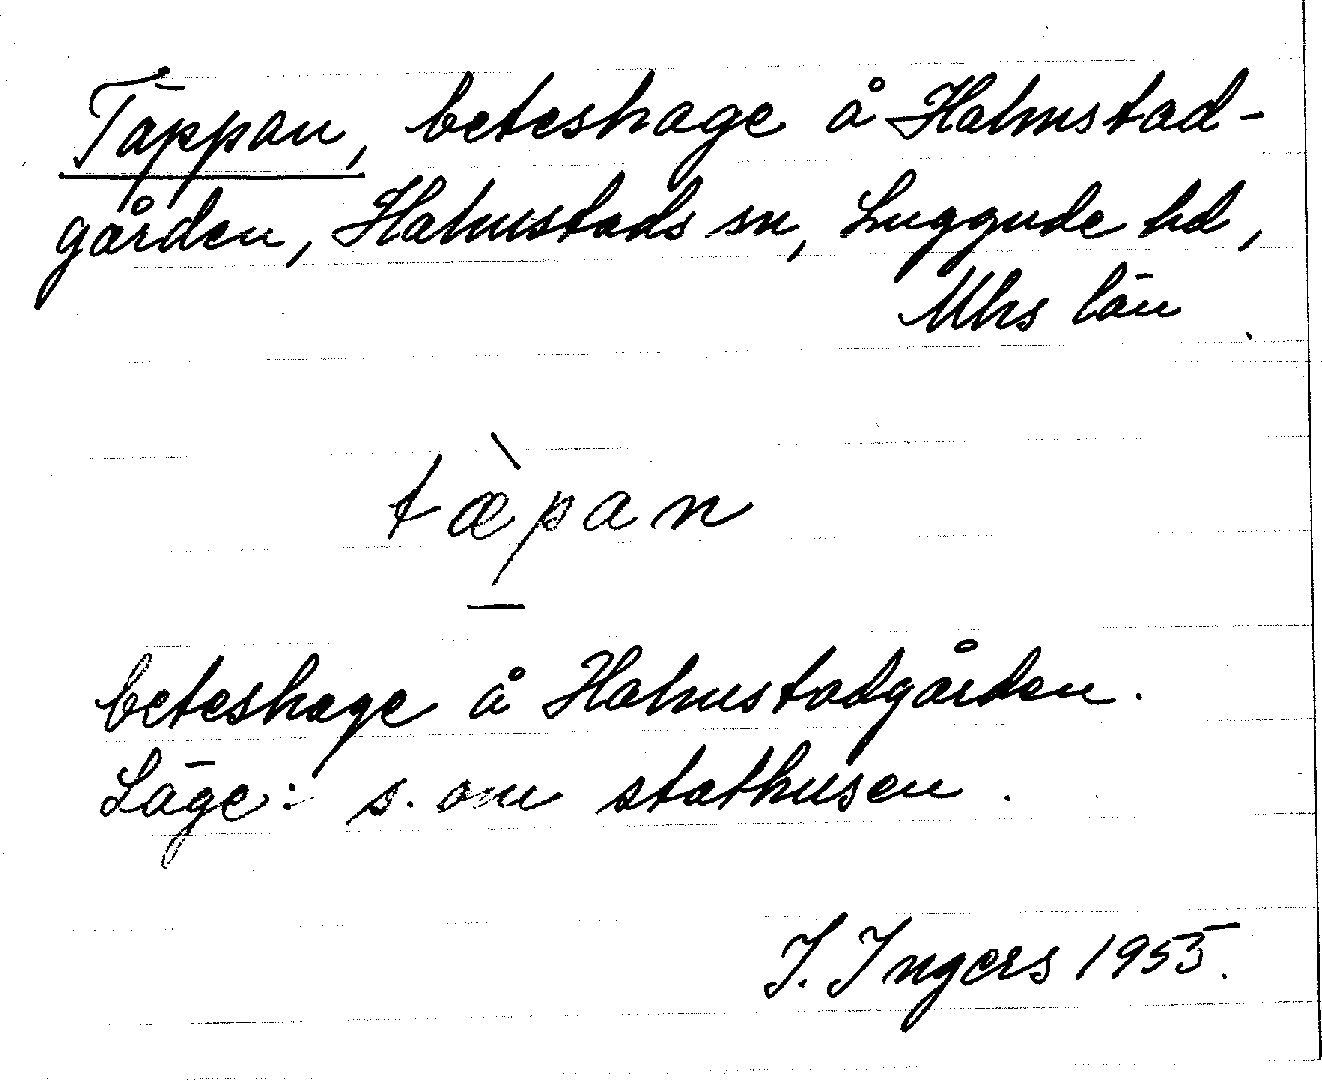 Täppan, beteshage å Halmstad-
gården, Halmstads sn, Luggude hd,
Mhs län
tæ̀pan
beteshage å Halmstadgården.
Läge: s. om stathusen.
I. Ingers 1955.